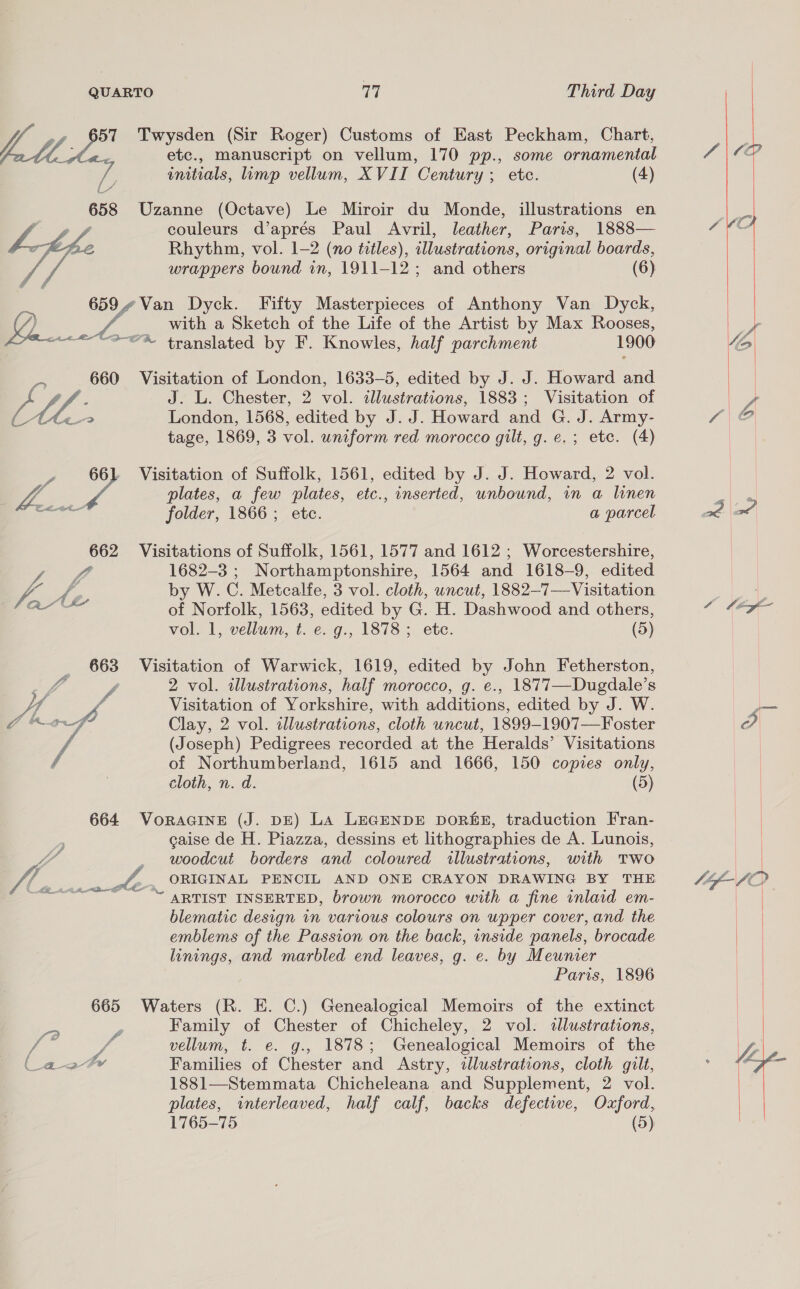 QUARTO 77 Third Day
657 Twysden (Sir Roger) Customs of East Peckham, Chart,
etc., manuscript on vellum, 170 pp., some ornamental
initials, limp vellum, XVII Century; etc. (4)
658 Uzanne (Octave) Le Miroir du Monde, illustrations en
couleurs d'aprés Paul Avril, leather, Paris, 1888—
Rhythm, vol. 1–2 (no titles), illustrations, original boards,
wrappers bound in, 1911–12; and others (6)
659 Van Dyck. Fifty Masterpieces of Anthony Van Dyck,
with a Sketch of the Life of the Artist by Max Rooses,
translated by F. Knowles, half parchment 1900
660 Visitation of London, 1633–5, edited by J. J. Howard and
J. L. Chester, 2 vol. illustrations, 1883; Visitation of
London, 1568, edited by J. J. Howard and G. J. Army-
tage, 1869, 3 vol. uniform red morocco gilt, g. e.; etc. (4)
661 Visitation of Suffolk, 1561, edited by J. J. Howard, 2 vol.
plates, a few plates, etc., inserted, unbound, in a linen
folder, 1866; etc. a parcel
662 Visitations of Suffolk, 1561, 1577 and 1612; Worcestershire,
1682–3; Northamptonshire, 1564 and 1618–9, edited
by W. C. Metcalfe, 3 vol. cloth, uncut, 1882–7—Visitation
of Norfolk, 1563, edited by G. H. Dashwood and others,
vol. 1, vellum, t. e. g., 1878; etc. (5)
663 Visitation of Warwick, 1619, edited by John Fetherston,
2 vol. illustrations, half morocco, g. e., 1877—Dugdale's
Visitation of Yorkshire, with additions, edited by J. W.
Clay, 2 vol. illustrations, cloth uncut, 1899–1907—Foster
(Joseph) Pedigrees recorded at the Heralds' Visitations
of Northumberland, 1615 and 1666, 150 copies only,
cloth, n. d. (5)
664 VORAGINE (J. DE) LA LEGENDE DORÉE, traduction Fran-
çaise de H. Piazza, dessins et lithographies de A. Lunois,
woodcut borders and coloured illustrations, with TWO
ORIGINAL PENCIL AND ONE CRAYON DRAWING BY THE
ARTIST INSERTED, brown morocco with a fine inlaid em-
blematic design in various colours on upper cover, and the
emblems of the Passion on the back, inside panels, brocade
linings, and marbled end leaves, g. e. by Meunier
Paris, 1896
665 Waters (R. E. C.) Genealogical Memoirs of the extinct
Family of Chester of Chicheley, 2 vol. illustrations,
vellum, t. e. g., 1878; Genealogical Memoirs of the
Families of Chester and Astry, illustrations, cloth gilt,
1881—Stemmata Chicheleana and Supplement, 2 vol.
plates, interleaved, half calf, backs defective, Oxford,
1765–75 (5)